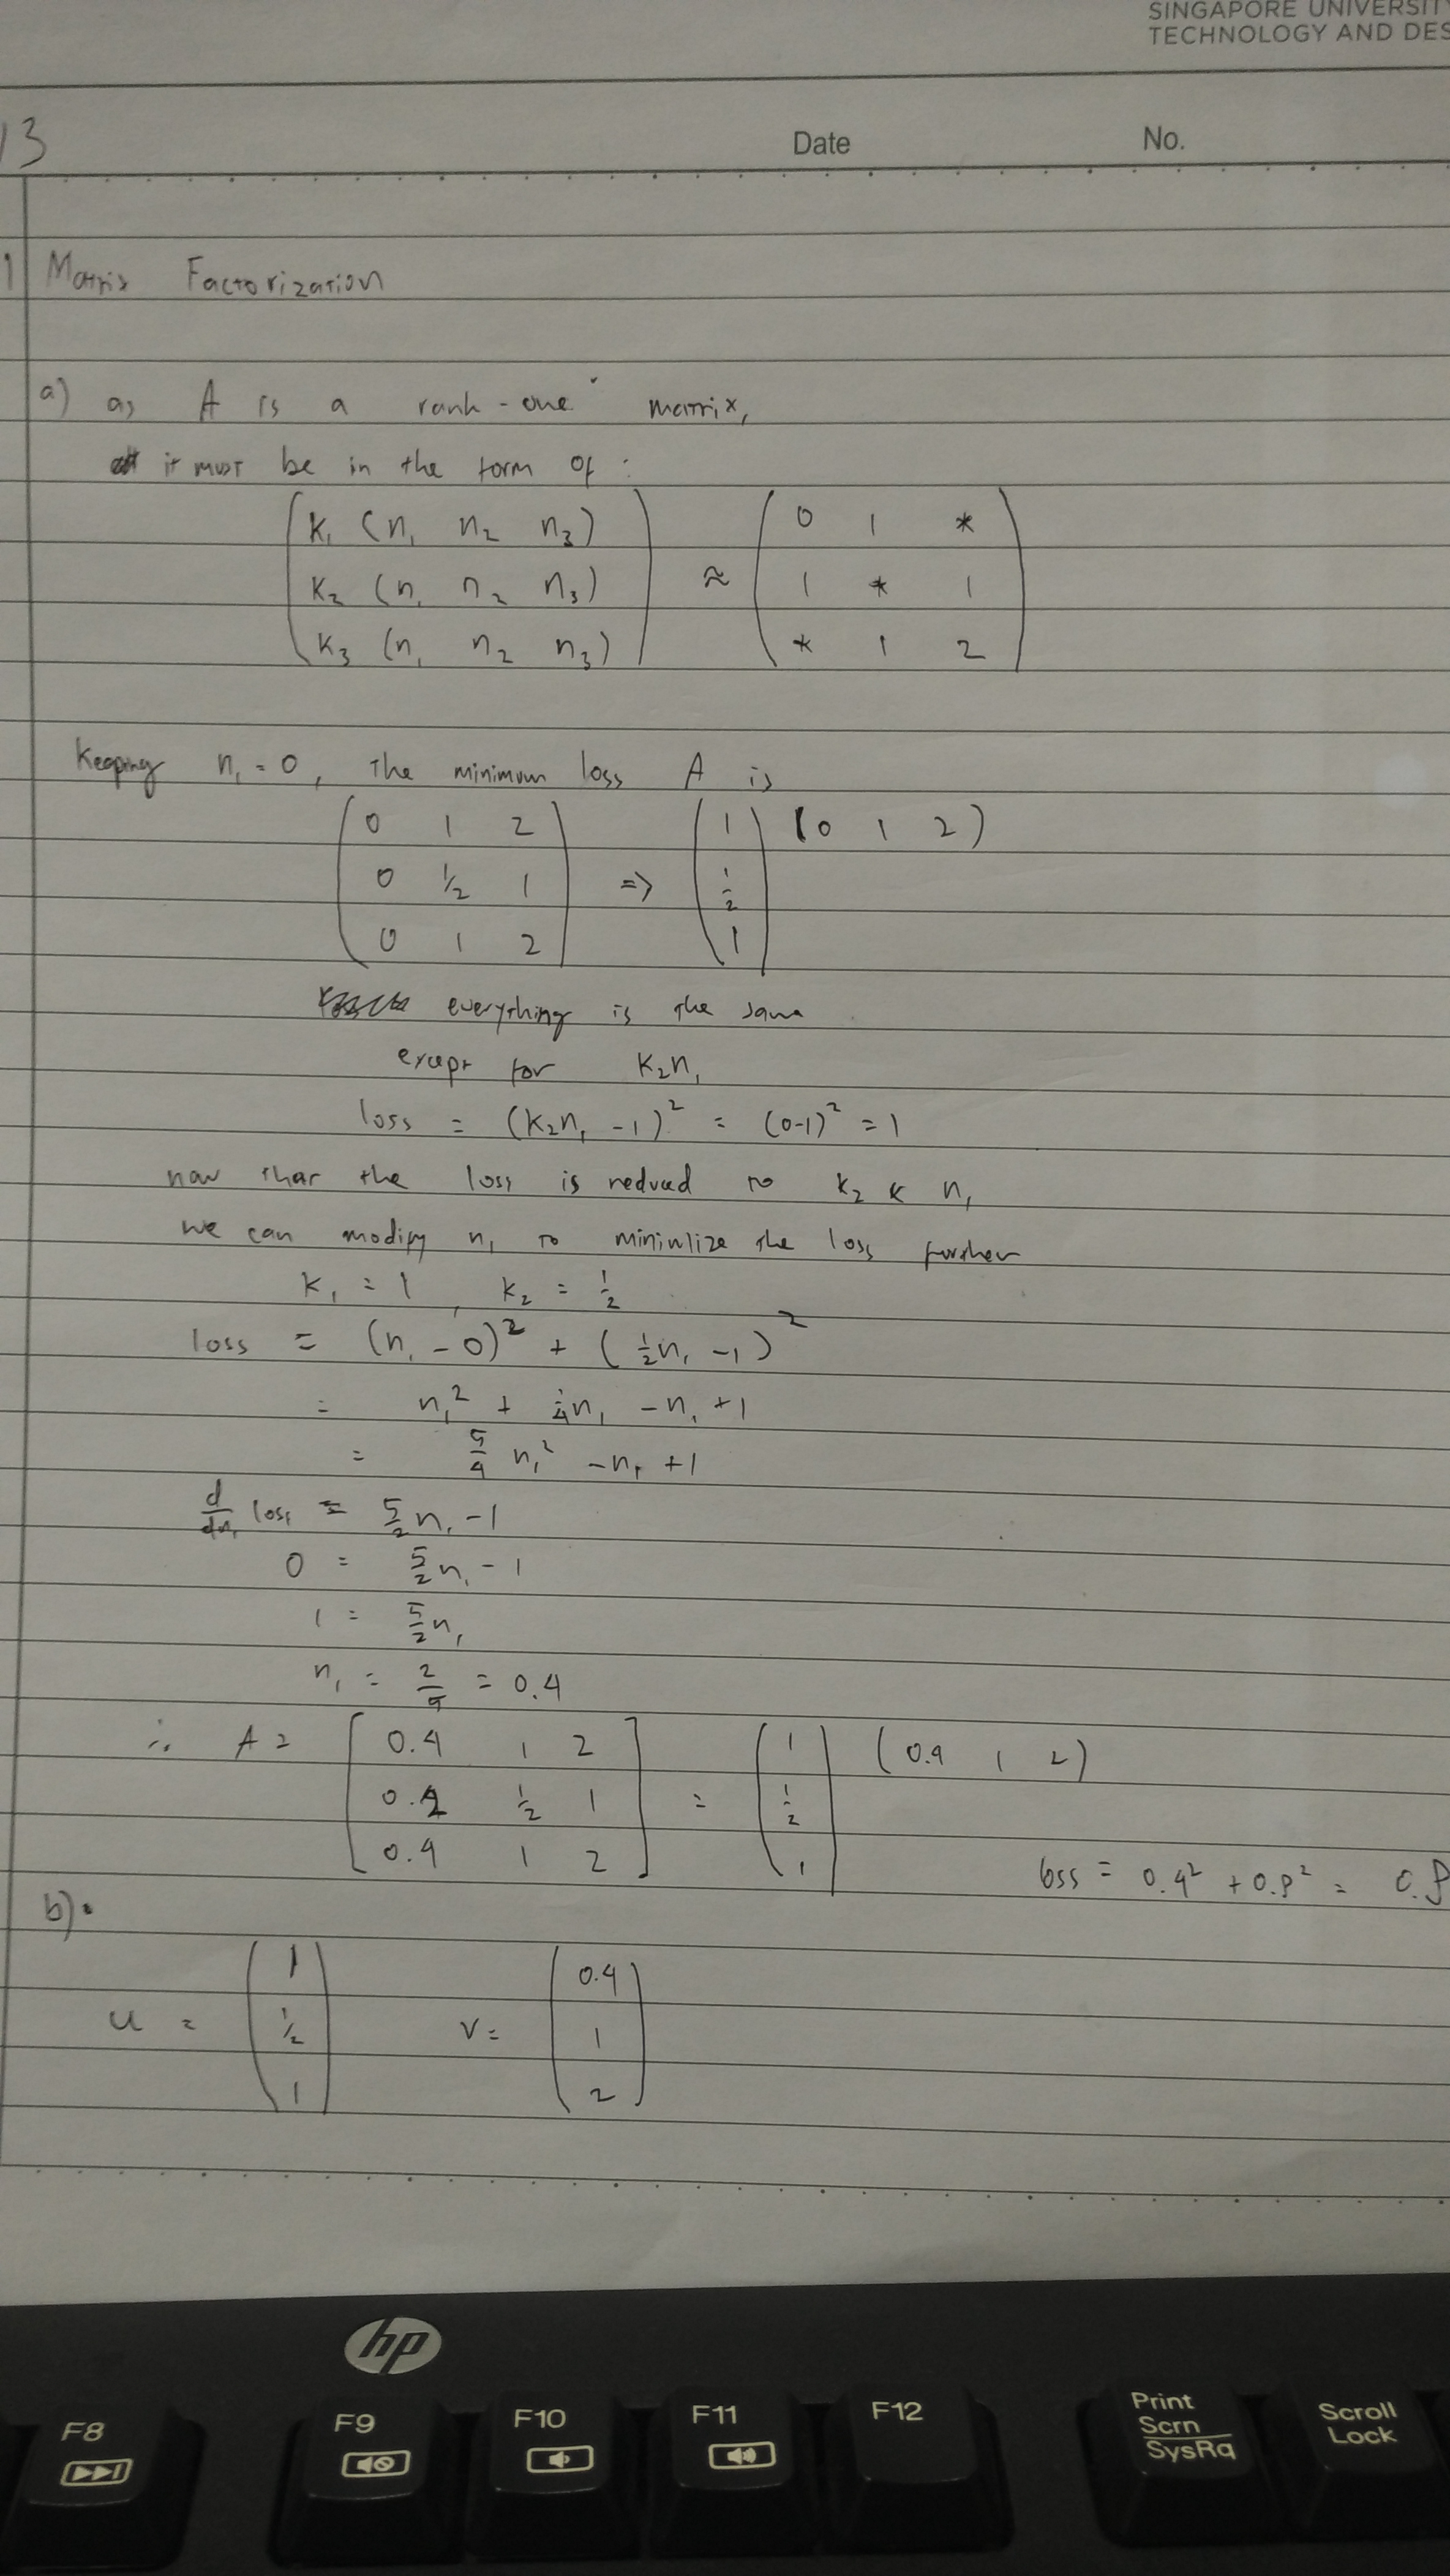 SINGAPORE UNIVERSIT
TECHNOLOGY AND DES
13
Date No.
1 Matrix Factorization
a) as A is a rank-one matrix,
it must be in the form of :
( K₁ (n₁ n₂ n₃) ) ≈ ( 0 1 * )
( K₂ (n₁ n₂ n₃) ) ( 1 * 1 )
( K₃ (n₁ n₂ n₃) ) ( * 1 2 )
Keeping n₁ = 0, the minimum loss A is
( 0 1 2 ) ( 1 ) (0 1 2)
( 0 1/2 1 ) => ( 1/2 )
( 0 1 2 ) ( 1 )
everything is the same
except for K₂n₁
loss = (K₂n₁ - 1)² = (0-1)² = 1
now that the loss is reduced to K₂ & n₁
we can modify n₁ to minimize the loss further
K₁ = 1, K₂ = 1/2
loss = (n₁ - 0)² + (1/2 n₁ - 1)²
= n₁² + 1/4 n₁ - n₁ + 1
= 5/4 n₁² - n₁ + 1
d/dn₁ loss = 5/2 n₁ - 1
0 = 5/2 n₁ - 1
1 = 5/2 n₁
n₁ = 2/5 = 0.4
∴ A = [ 0.4 1 2 ] ( 1 ) (0.4 1 2)
[ 0.2 1/2 1 ] = ( 1/2 )
[ 0.4 1 2 ] ( 1 )
loss = 0.4² + 0.8² = 0.8
b).
u = ( 1 ) v = ( 0.4 )
( 1/2 ) ( 1 )
( 1 ) ( 2 )
hp
F8 F9 F10 F11 F12 Print Scrn SysRq Scroll Lock